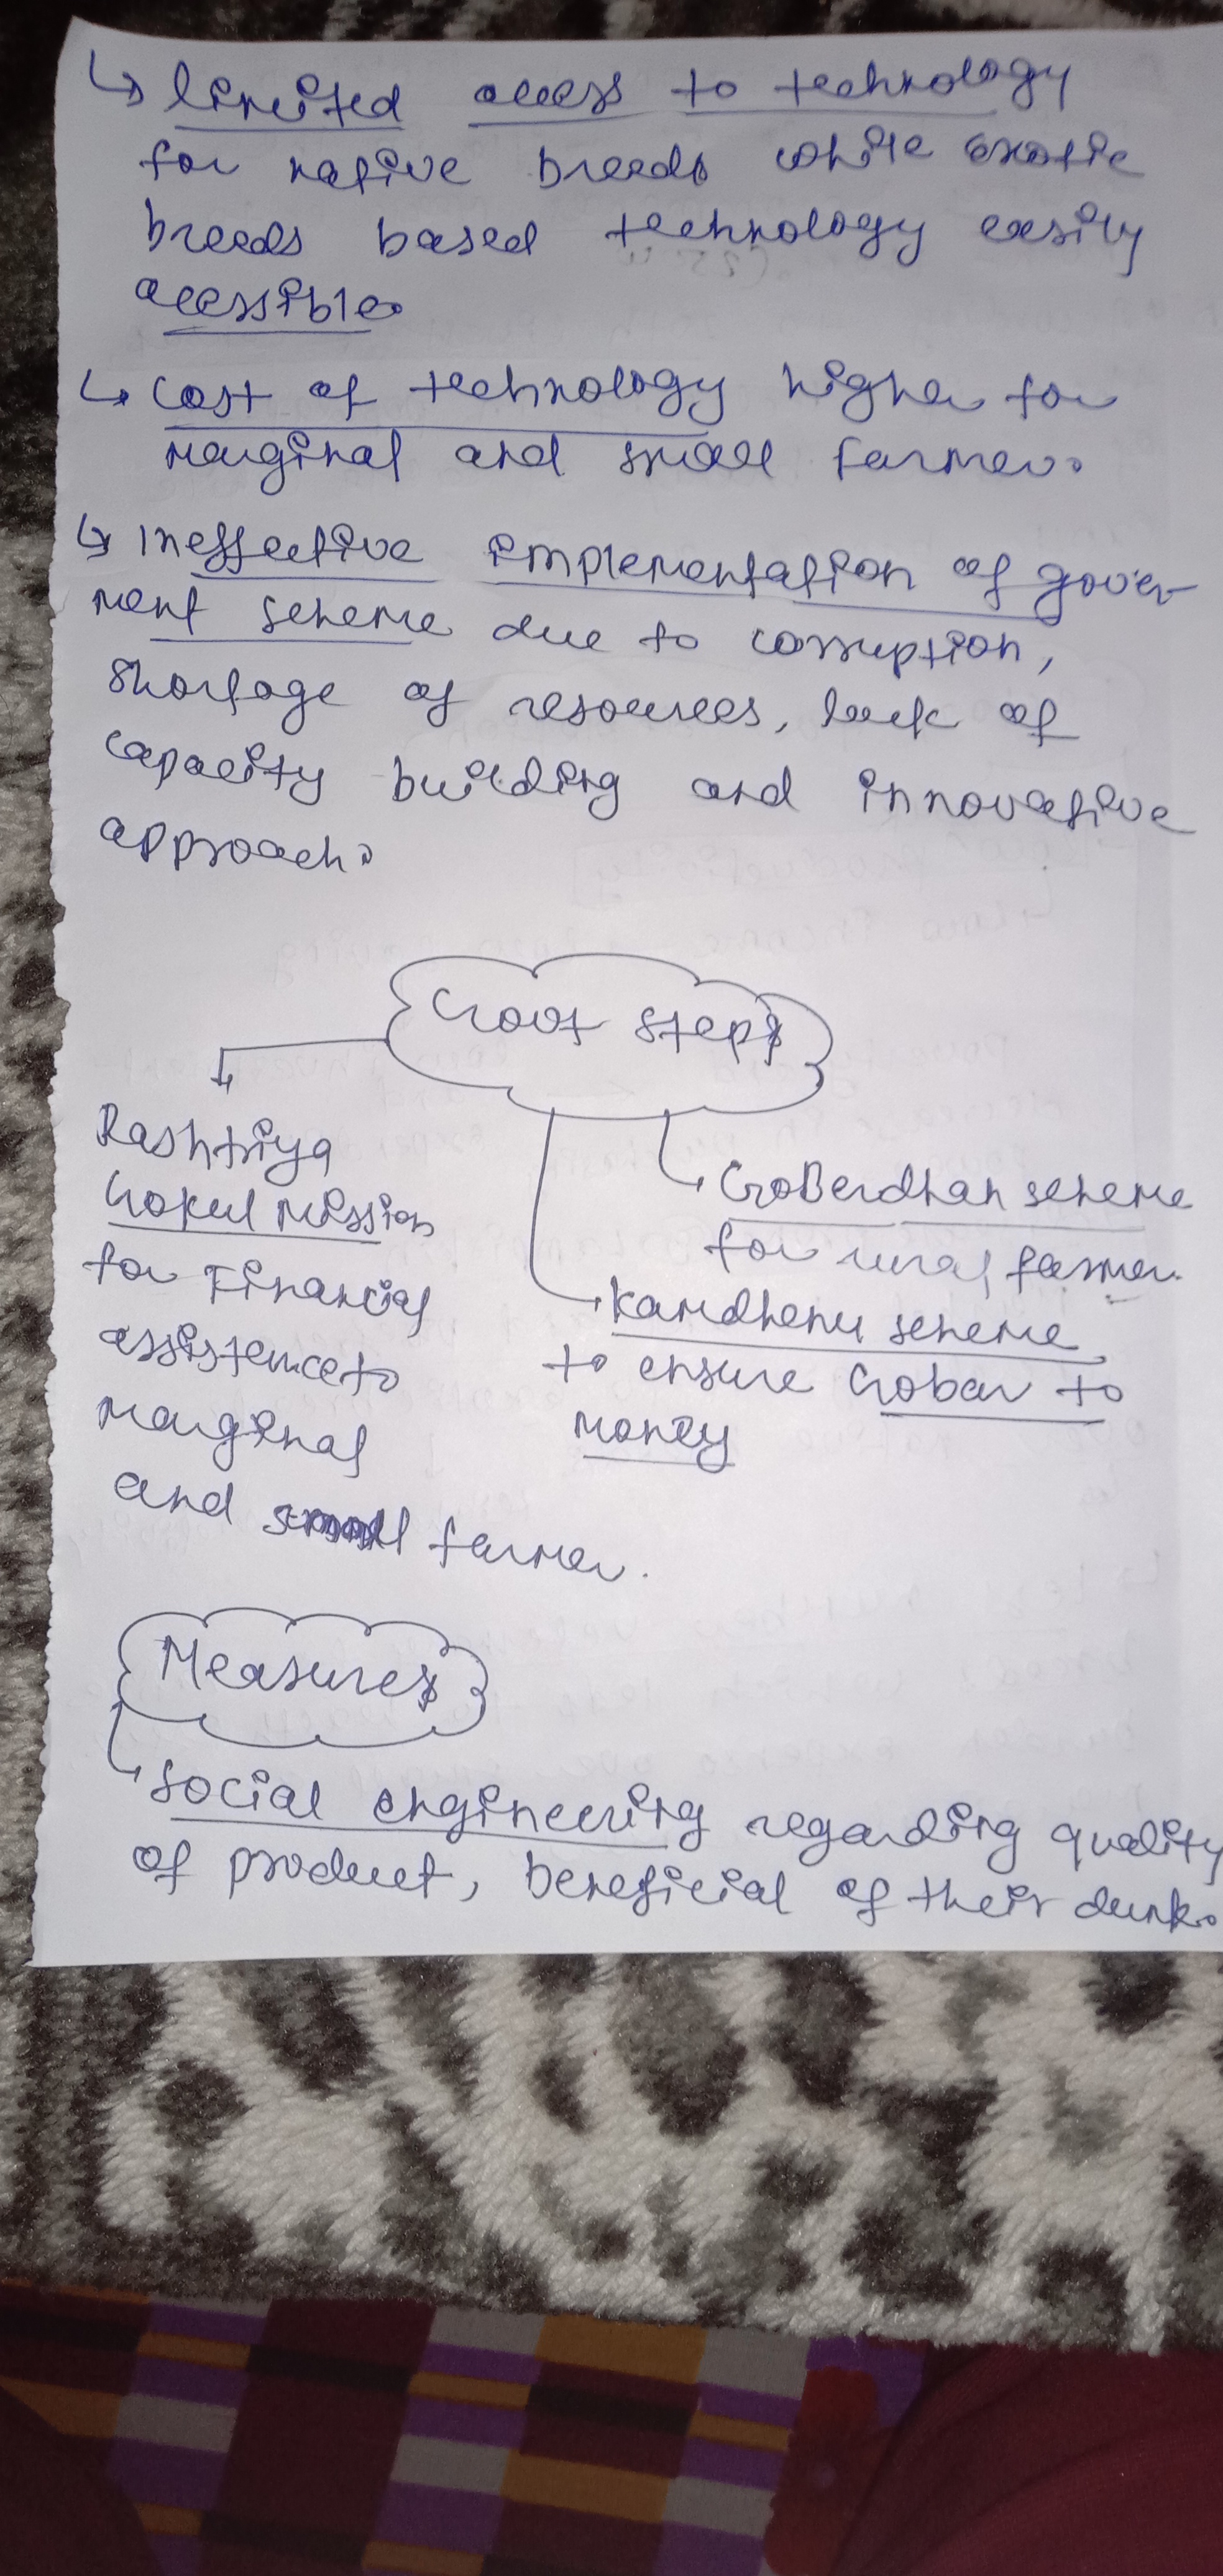 ↳ limited access to technology
for native breeds while exotic
breeds based technology easily
acessible.
↳ Cost of technology higher for
marginal and small farmer.
↳ Ineffective implementation of gover-
ment scheme due to corruption,
shortage of resources, lack of
capacity building and innovative
approach.
Govt steps
Rashtriya
Gokul Mission
for Financial
assistence to
marginal
and small farmer.
Goberdhan scheme
for rural farmer.
Kamdhenu scheme
to ensure Gobar to
money
Measures
Social engineering regarding quality
of product, beneficial of their dunk.